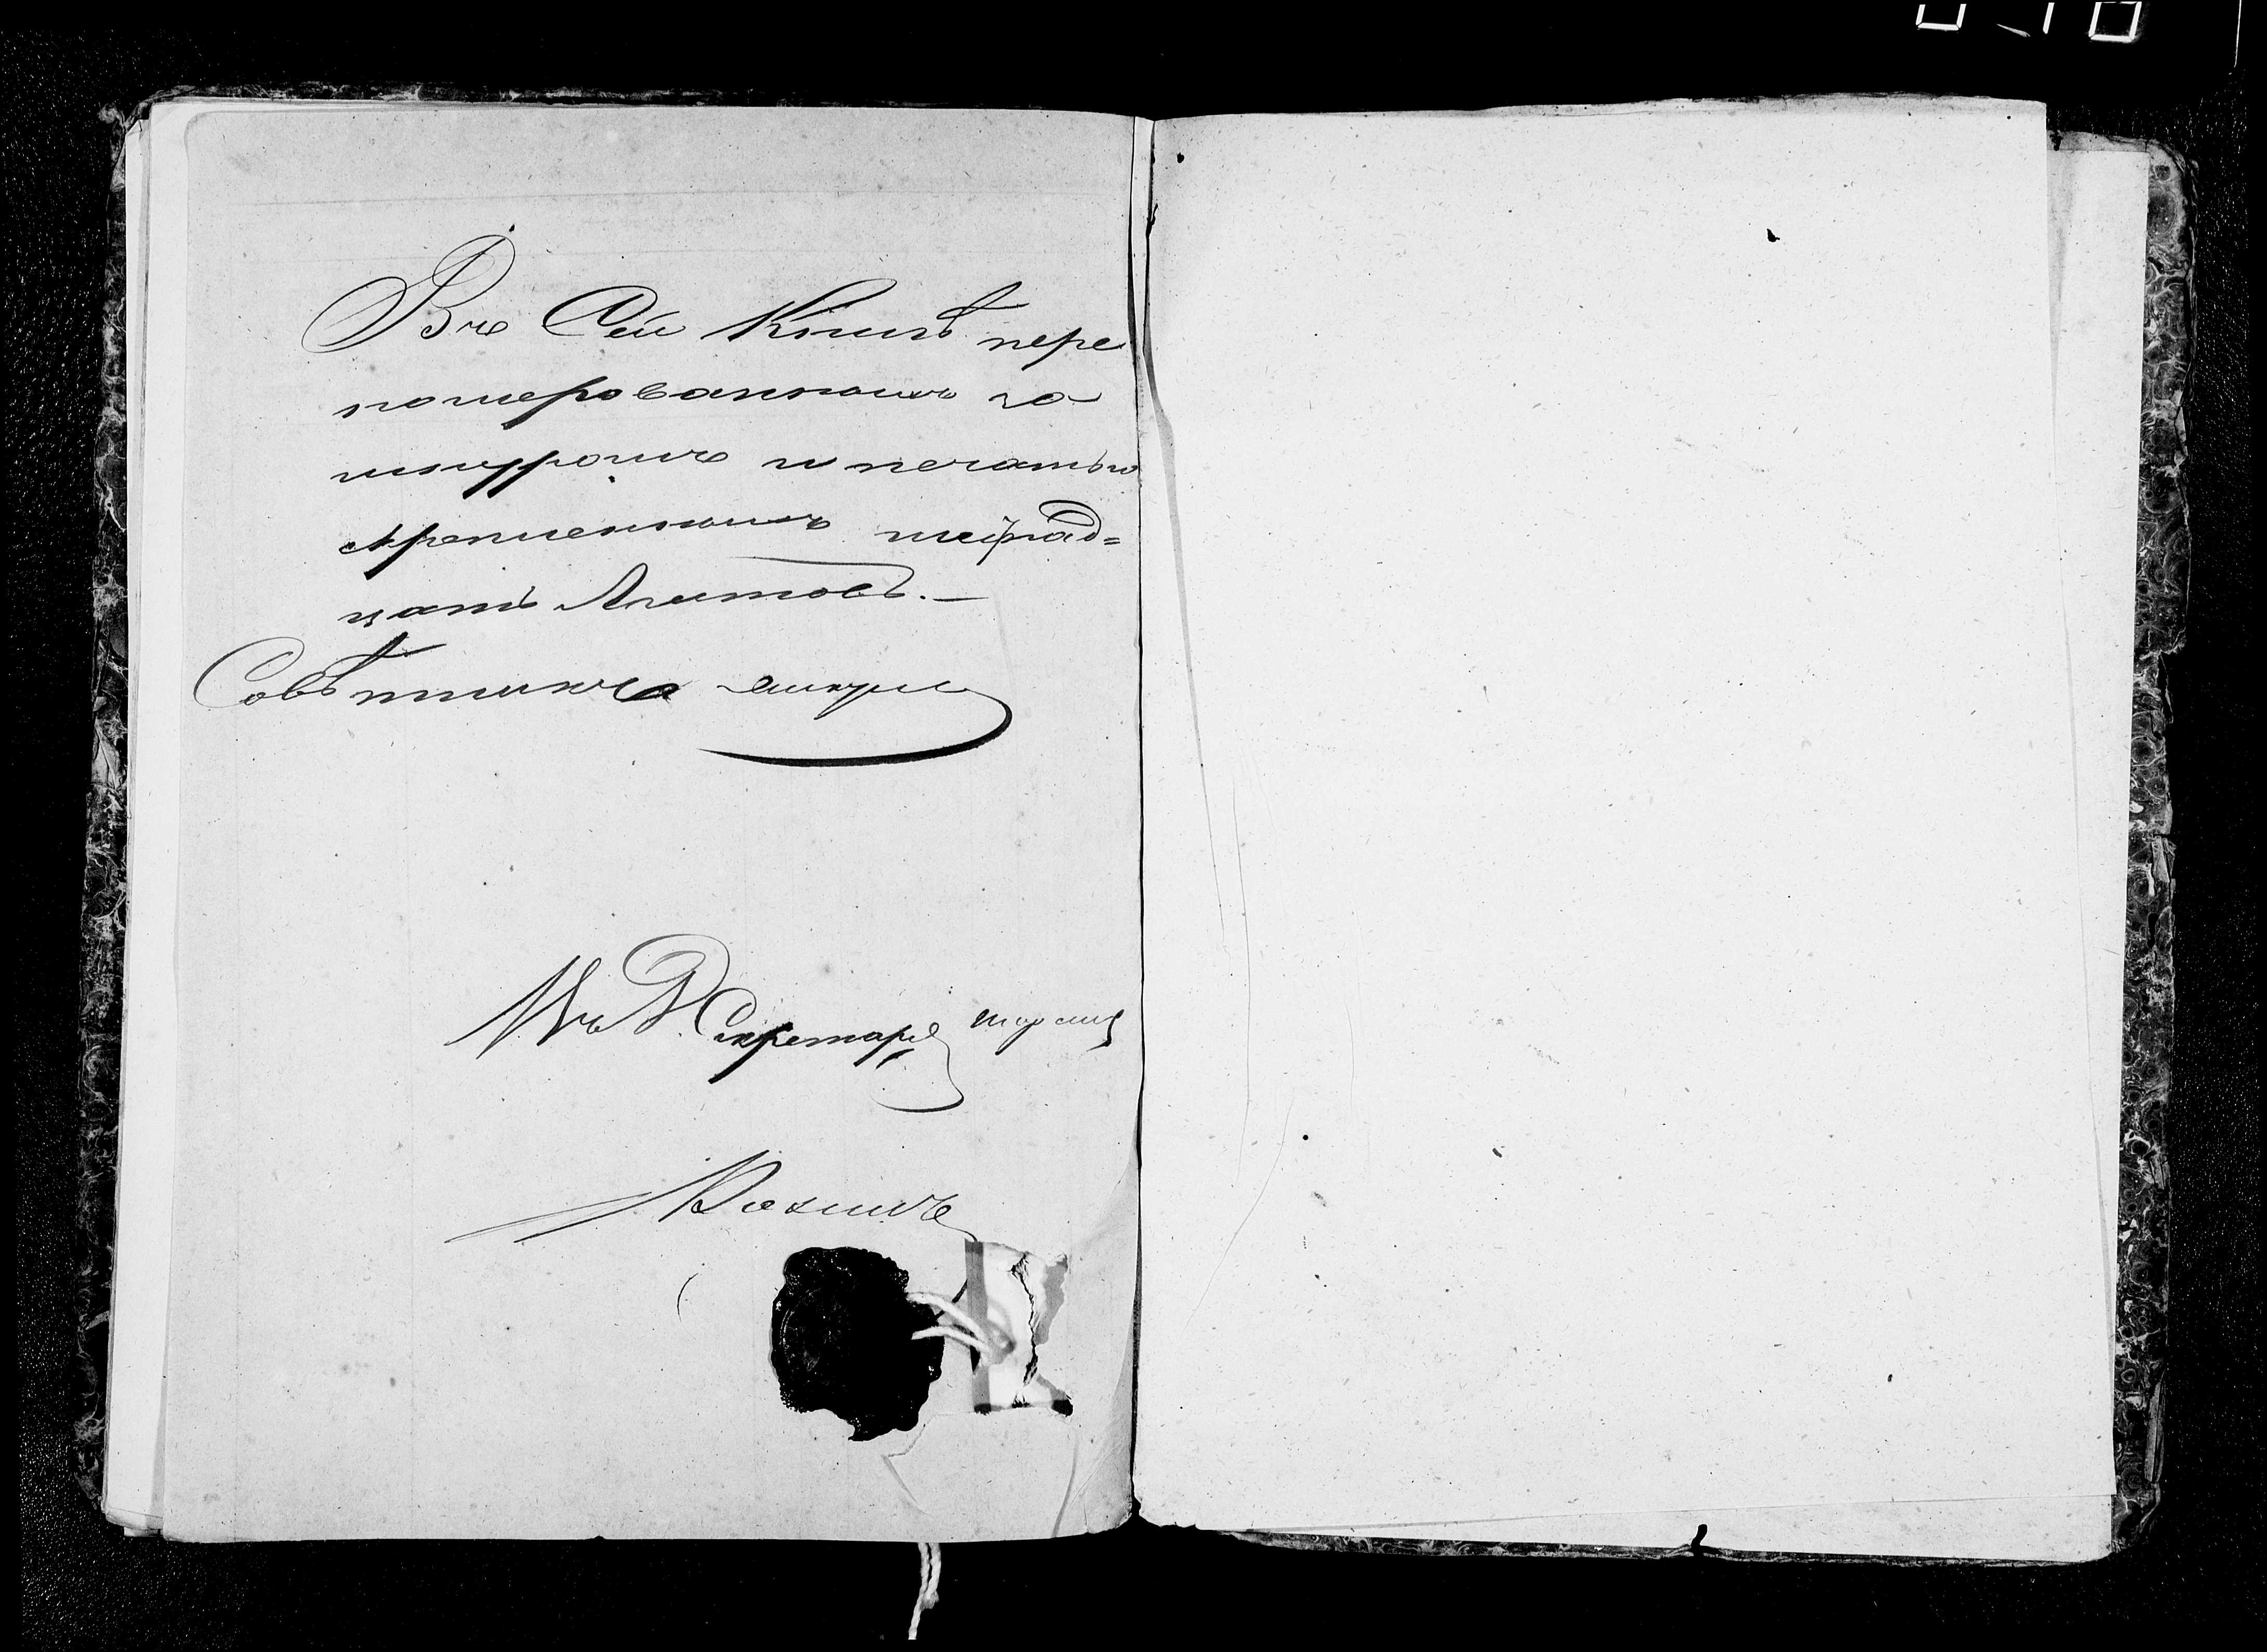 Въ Сей Книгѣ пере
номерованныхъ за
шнуромъ и печатью
скрепленныхъ шестнад=
цать Листовъ.—
Совѣтникъ
Секретарь